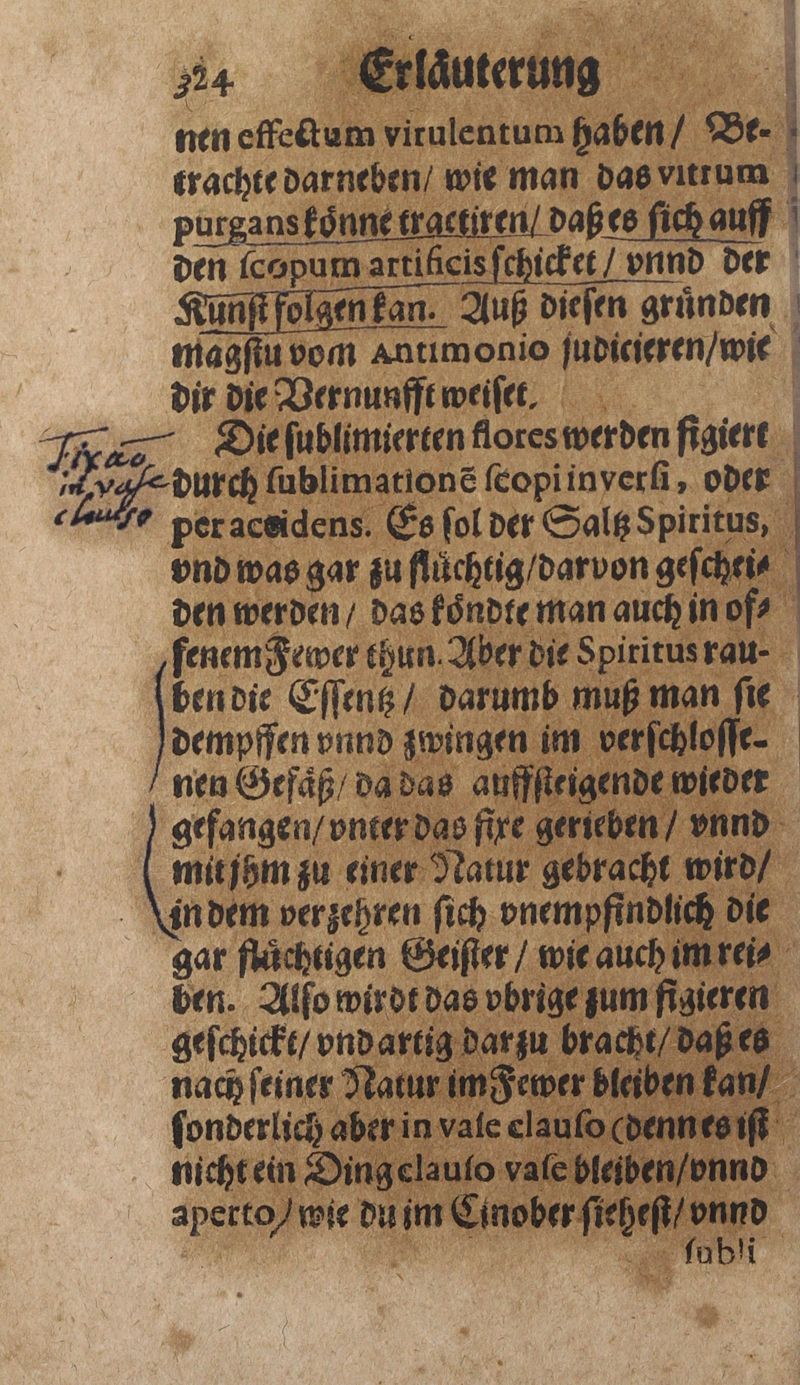 324 Erläuterung
nen effectum virulentum haben / Be-
trachte darneben / wie man das vitrum
purgans könne tractiren / daß es sich auff
den scopum artificis schicket / vnnd der
Kunst folgen kan. Auß diesen gründen
magstu vom Antimonio judicieren / wie
dir die Vernunfft weiset.
Die sublimierten flores werden figiert
durch sublimationẽ scopi inversi, oder
per accidens. Es sol der Saltz Spiritus,
vnd was gar zu flüchtig / darvon geschei-
den werden / das köndte man auch in of-
fenem Fewer thun. Aber die Spiritus rau-
ben die Essentz / darumb muß man sie
dempffen vnnd zwingen im verschlosse-
nen Gefäß / da das auffsteigende wieder
gefangen / vnter das fixe gerieben / vnnd
mit jhm zu einer Natur gebracht wird /
in dem verzehren sich vnempfindlich die
gar flüchtigen Geister / wie auch im rei-
ben. Also wirdt das vbrige zum figieren
geschickt / vnd artig darzu bracht / daß es
nach seiner Natur im Fewer bleiben kan /
sonderlich aber in vase clauso (denn es ist
nicht ein Ding clauso vase bleiben / vnnd
aperto / wie du im Cinober siehest / vnnd
subli
Fixão
in vase
clauso